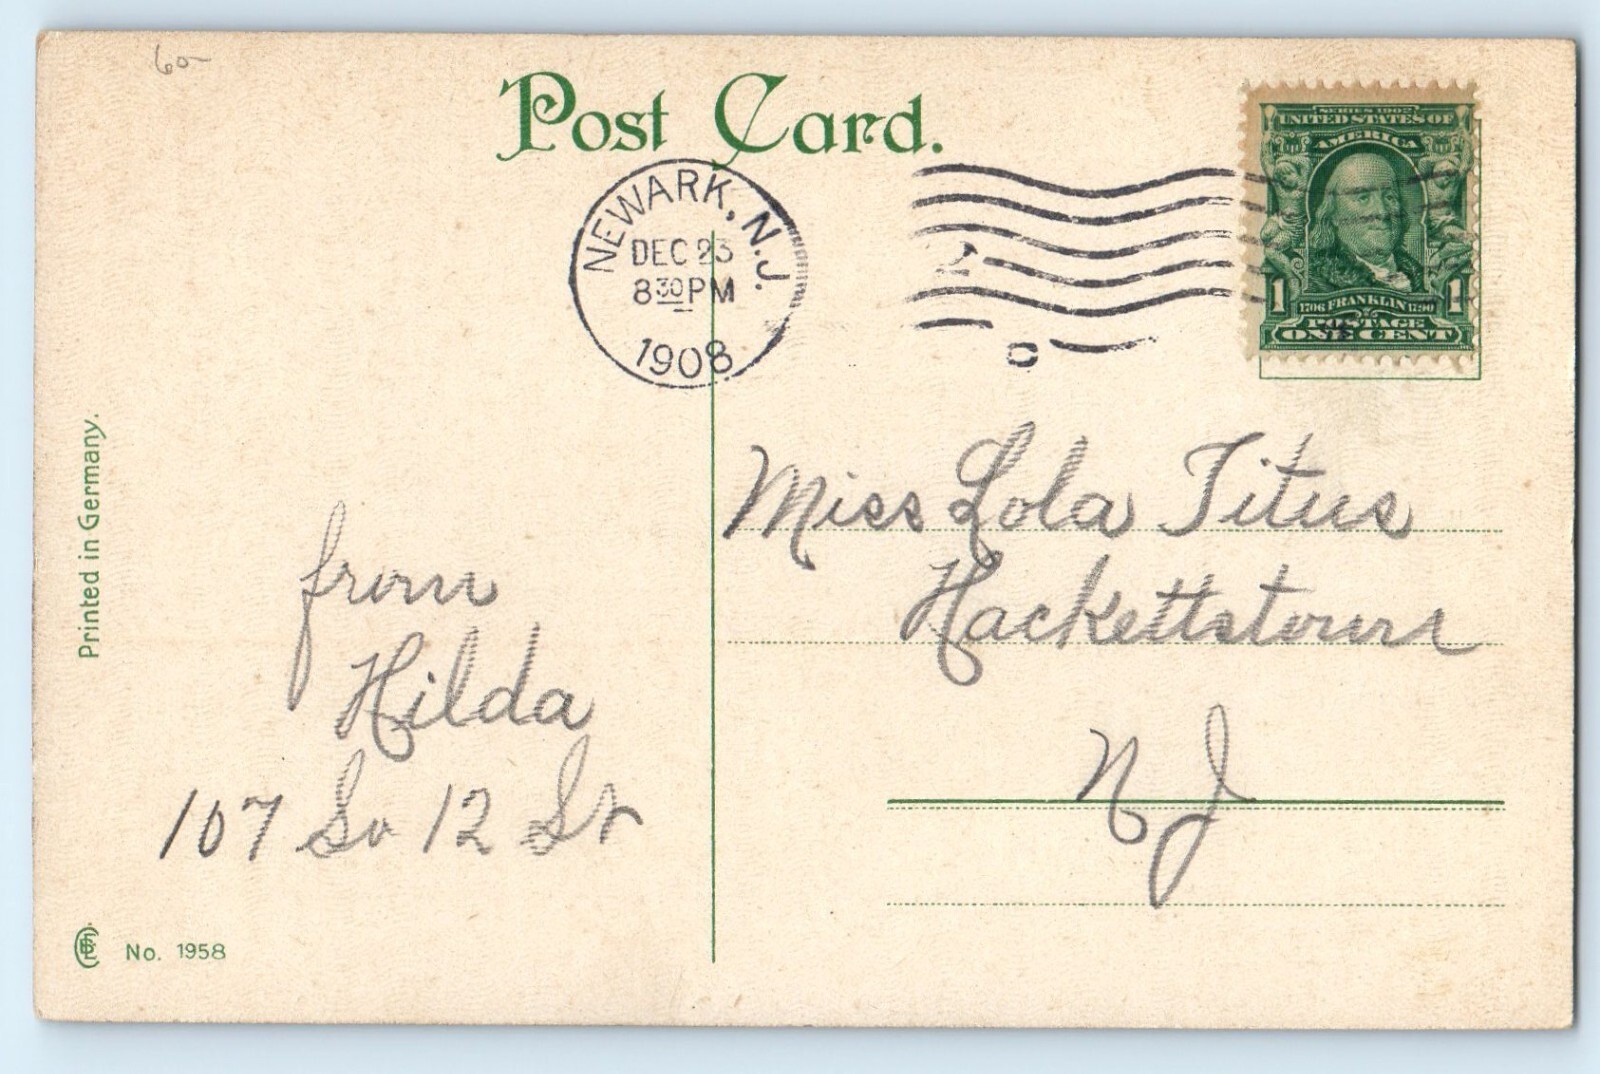 60-
Post Card.
SERIES 1902
UNITED STATES OF
AMERICA
1706 FRANKLIN 1790
1 1
POSTAGE
ONE CENT
NEWARK, N.J.
DEC 23
8 30 PM
1908
2
Miss Lola Titus
Hackettstown
N J
from
Hilda
107 So 12 St
Printed in Germany.
No. 1958